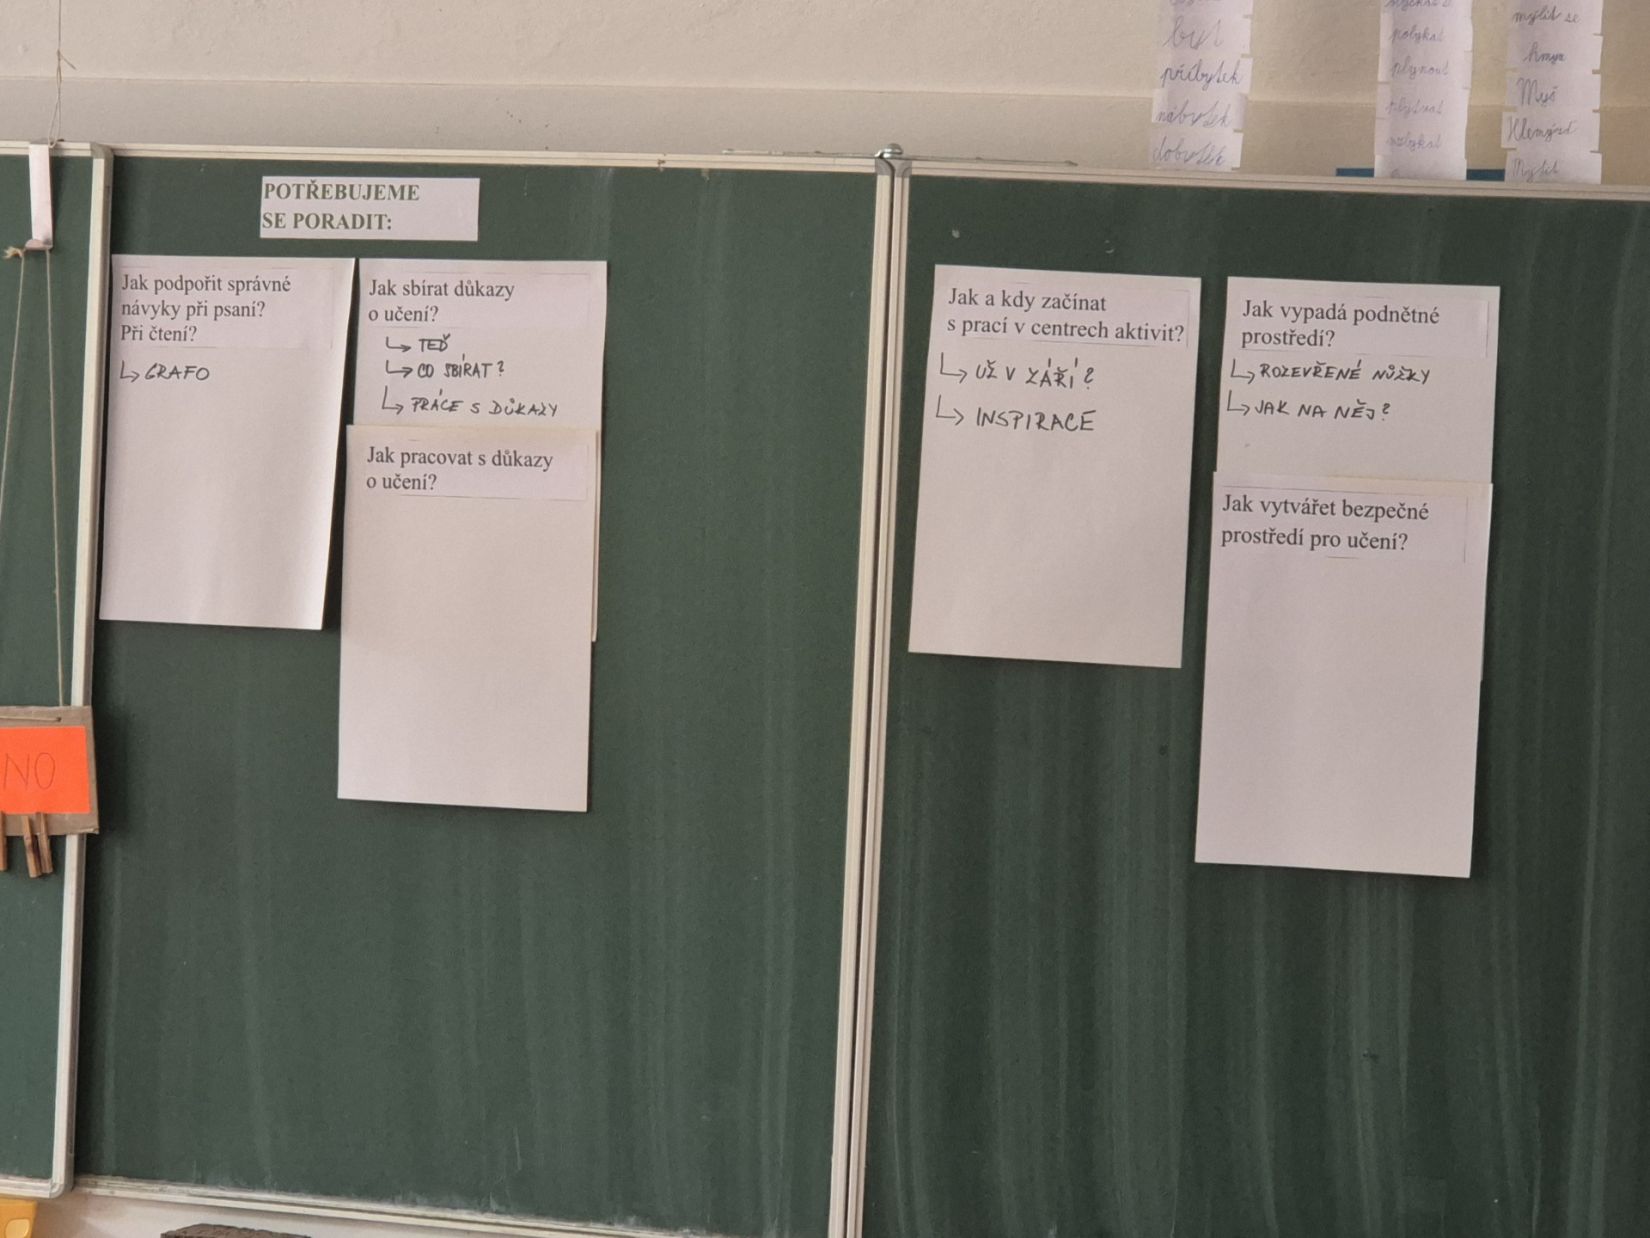 POTŘEBUJEME
SE PORADIT:
Jak podpořit správné
návyky při psaní?
Při čtení?
↳ GRAFO
Jak sbírat důkazy
o učení?
↳ TEĎ
↳ CO SBÍRAT?
↳ PRÁCE S DŮKAZY
Jak pracovat s důkazy
o učení?
Jak a kdy začínat
s prací v centrech aktivit?
↳ UŽ V ZÁŘÍ?
↳ INSPIRACE
Jak vypadá podnětné
prostředí?
↳ ROZEVŘENÉ NŮŽKY
↳ JAK NA NĚJ?
Jak vytvářet bezpečné
prostředí pro učení?
NO
byt
příbytek
nábytek
dobytek
polykat
plynout
plýtvat
mýlit se
hmyz
Myš
Hlemýžď